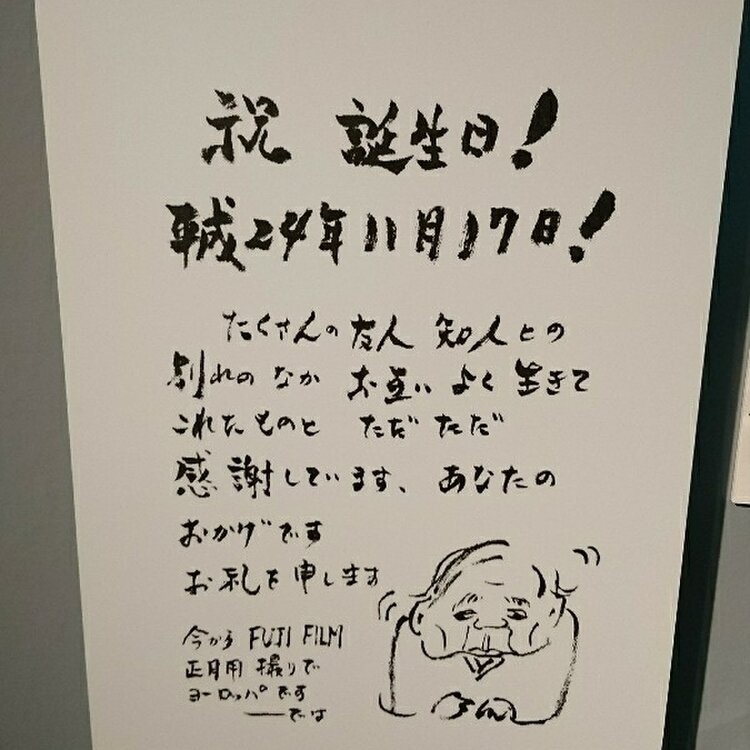 祝 誕生日！
平成24年11月17日！
たくさんの友人 知人との
別れの なか お互い よく 生きて
これたものと ただ ただ
感謝しています、あなたの
おかげです
お礼を申します
今から FUJI FILM
正月用 撮りで
ヨーロッパです
―では